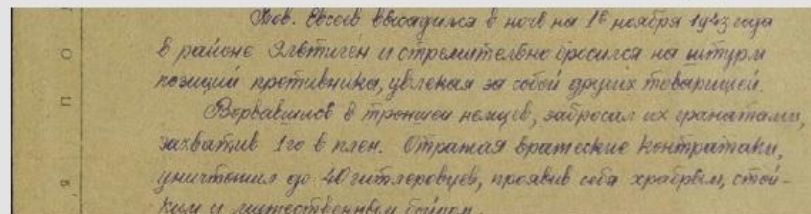 Тов. Евсеев высадился в ночь на 1е ноября 1943 года
в районе Эльтиген и стремительно бросился на штурм
позиций противника, увлекая за собой других товарищей.
Ворвавшись в траншеи немцев, забросал их гранатами,
захватив 1го в плен. Отражая вражеские контратаки,
уничтожил до 40 гитлеровцев, проявив себя храбрым, стой-
ким и мужественным бойцом.